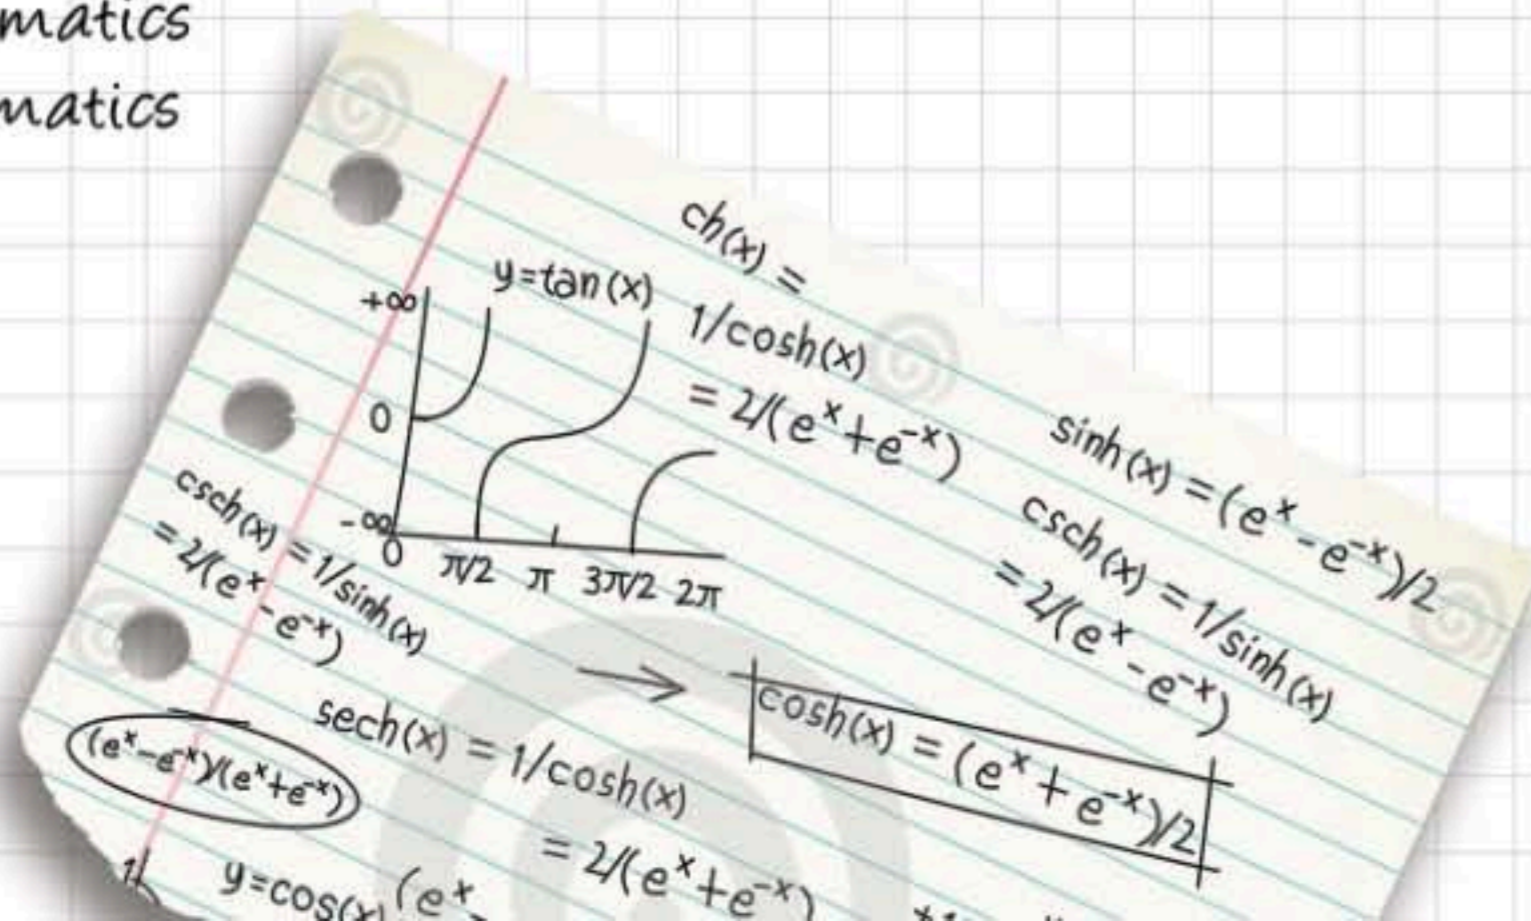 matics
matics
ch(x) =
1/cosh(x)
= 2/(eˣ+e⁻ˣ)
y=tan(x)
+∞
0
-∞
0 π/2 π 3π/2 2π
sinh(x) = (eˣ-e⁻ˣ)/2
csch(x) = 1/sinh(x)
= 2/(eˣ-e⁻ˣ)
csch(x) = 1/sinh(x)
= 2/(eˣ-e⁻ˣ)
cosh(x) = (eˣ+e⁻ˣ)/2
sech(x) = 1/cosh(x)
= 2/(eˣ+e⁻ˣ)
(eˣ-e⁻ˣ)/(eˣ+e⁻ˣ)
1
y=cos(x)
(eˣ-